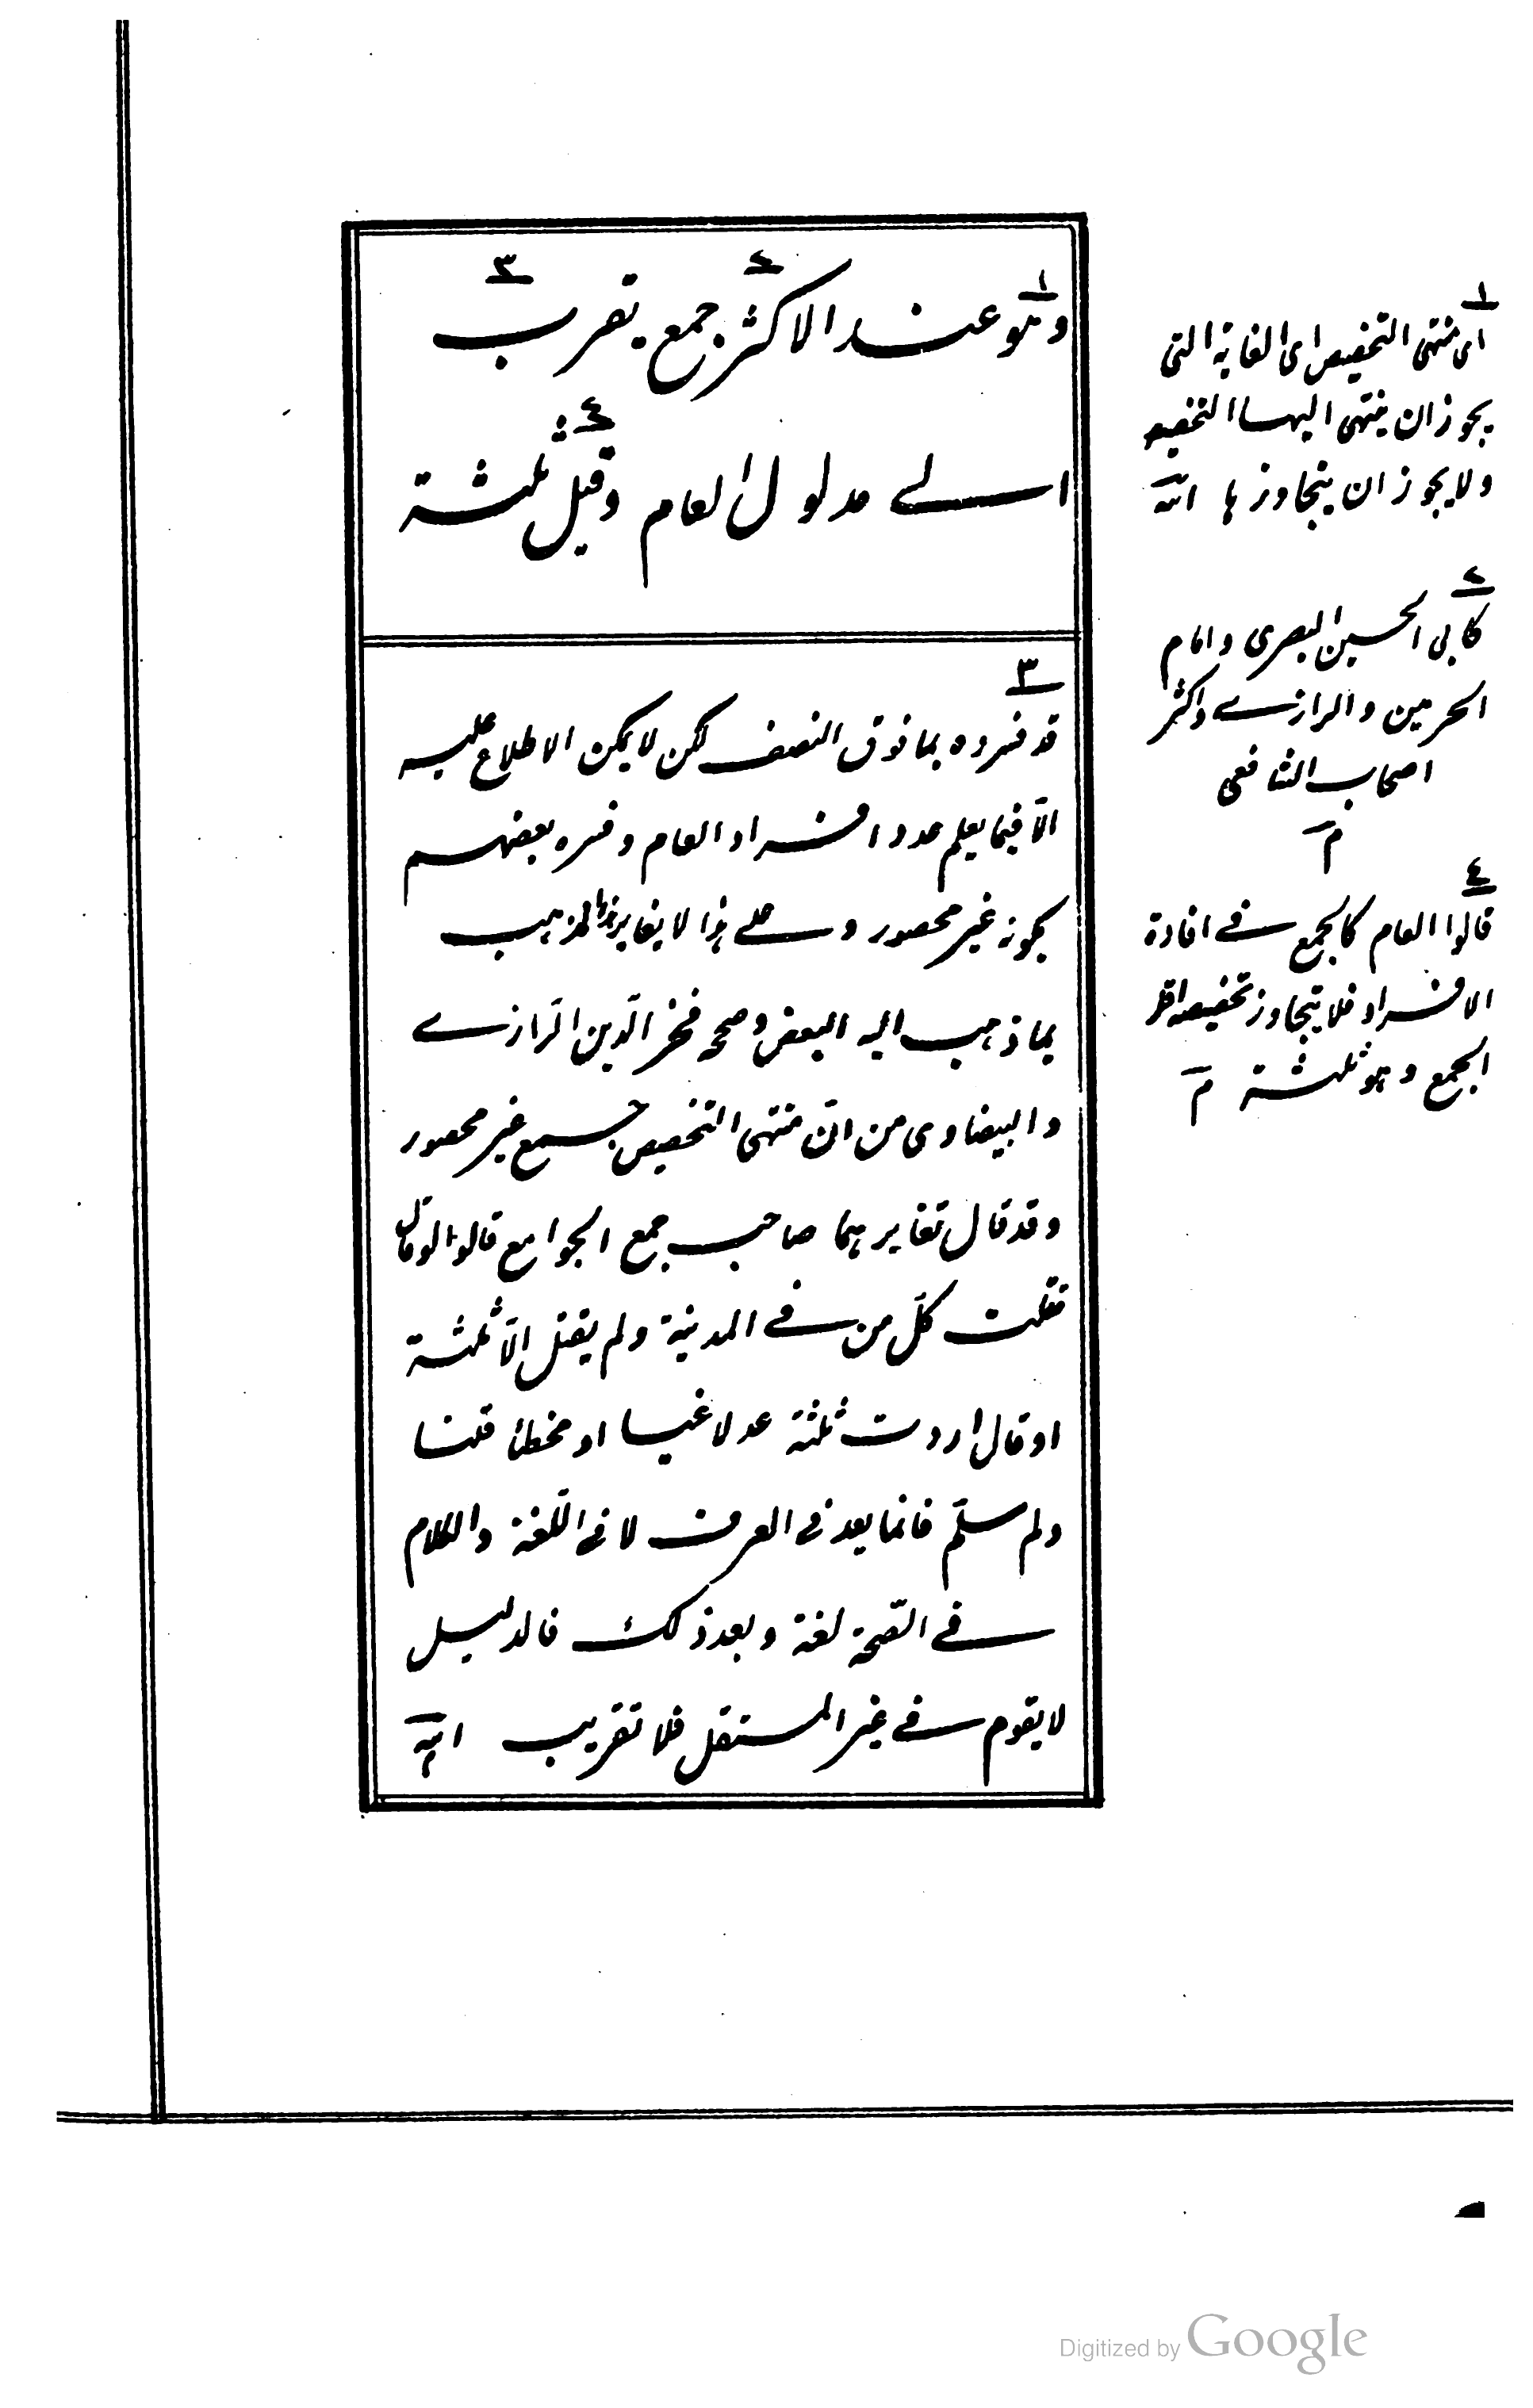 ١ ٢ ٣
وهو عند الاكثر جمع يقرب
٤
الى مدلول العام وقيل ثلثة
٣
قد فسروه بما فوق النصف لكن لا يمكن الاطلاع عليه
الّا فيما يعلم عدد افراد العام وفسره بعضهم
بكونه غير محصور وعلى هذا لا يغاير هذا المذهب
بما ذهب اليه البعض وصححه فخر الدّين الرّازى
والبيضاوى من انّ منتهى التخصيص جمع غير محصور
وقد قال تغايرهما صاحب جمع الجوامع قالوا لو قال
قتلت كلّ من فى المدينة ولم يقتل الّا ثلثة
او قال اردت ثلثة عد لاغيا او مخطئا قلنا
ولم سلّم فانما يعد فى العرف لا فى اللّغة والكلام
فى الصّحة لغة وبعد ذلك فالدليل
لا يقوم فى غير المستقل فلا تقريب
١
اى منتهى التخصيص اى الغاية التى
يجوز ان ينتهى اليها التخصيص
ولا يجوز ان يتجاوزها
٢
كابى الحسين البصرى وامام
الحرمين والرازى واكثر
اصحاب الشافعى
م
٤
قالوا العام كالجمع فى افادة
الافراد فلا يتجاوز تخصيصه اقل
الجمع وهو ثلثة م
Digitized by Google